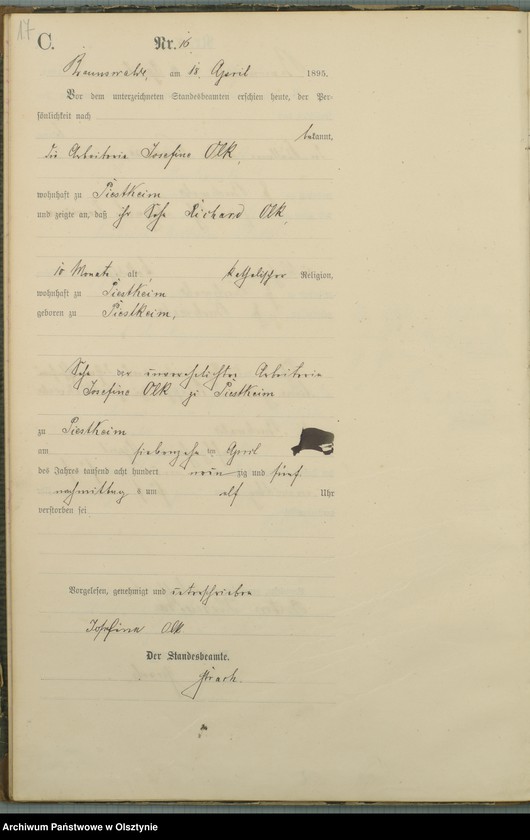 17
C.
Nr. 16.
Braunswalde, am 18. April 1895.
Vor dem unterzeichneten Standesbeamten erschien heute, der Per-
sönlichkeit nach
bekannt,
die Arbeiterin Josefine Olk,
wohnhaft zu Piestkeim
und zeigte an, daß ihr Sohn Richard Olk,
10 Monate alt, katholischer Religion,
wohnhaft zu Piestkeim
geboren zu Piestkeim,
Sohn der unverehelichten Arbeiterin
Josefine Olk zu Piestkeim
zu Piestkeim
am siebenzehn ten April
des Jahres tausend acht hundert neun zig und fünf
nachmittag s um elf Uhr
verstorben sei
Vorgelesen, genehmigt und unterschrieben
Josefine Olk
Der Standesbeamte.
Archiwum Państwowe w Olsztynie